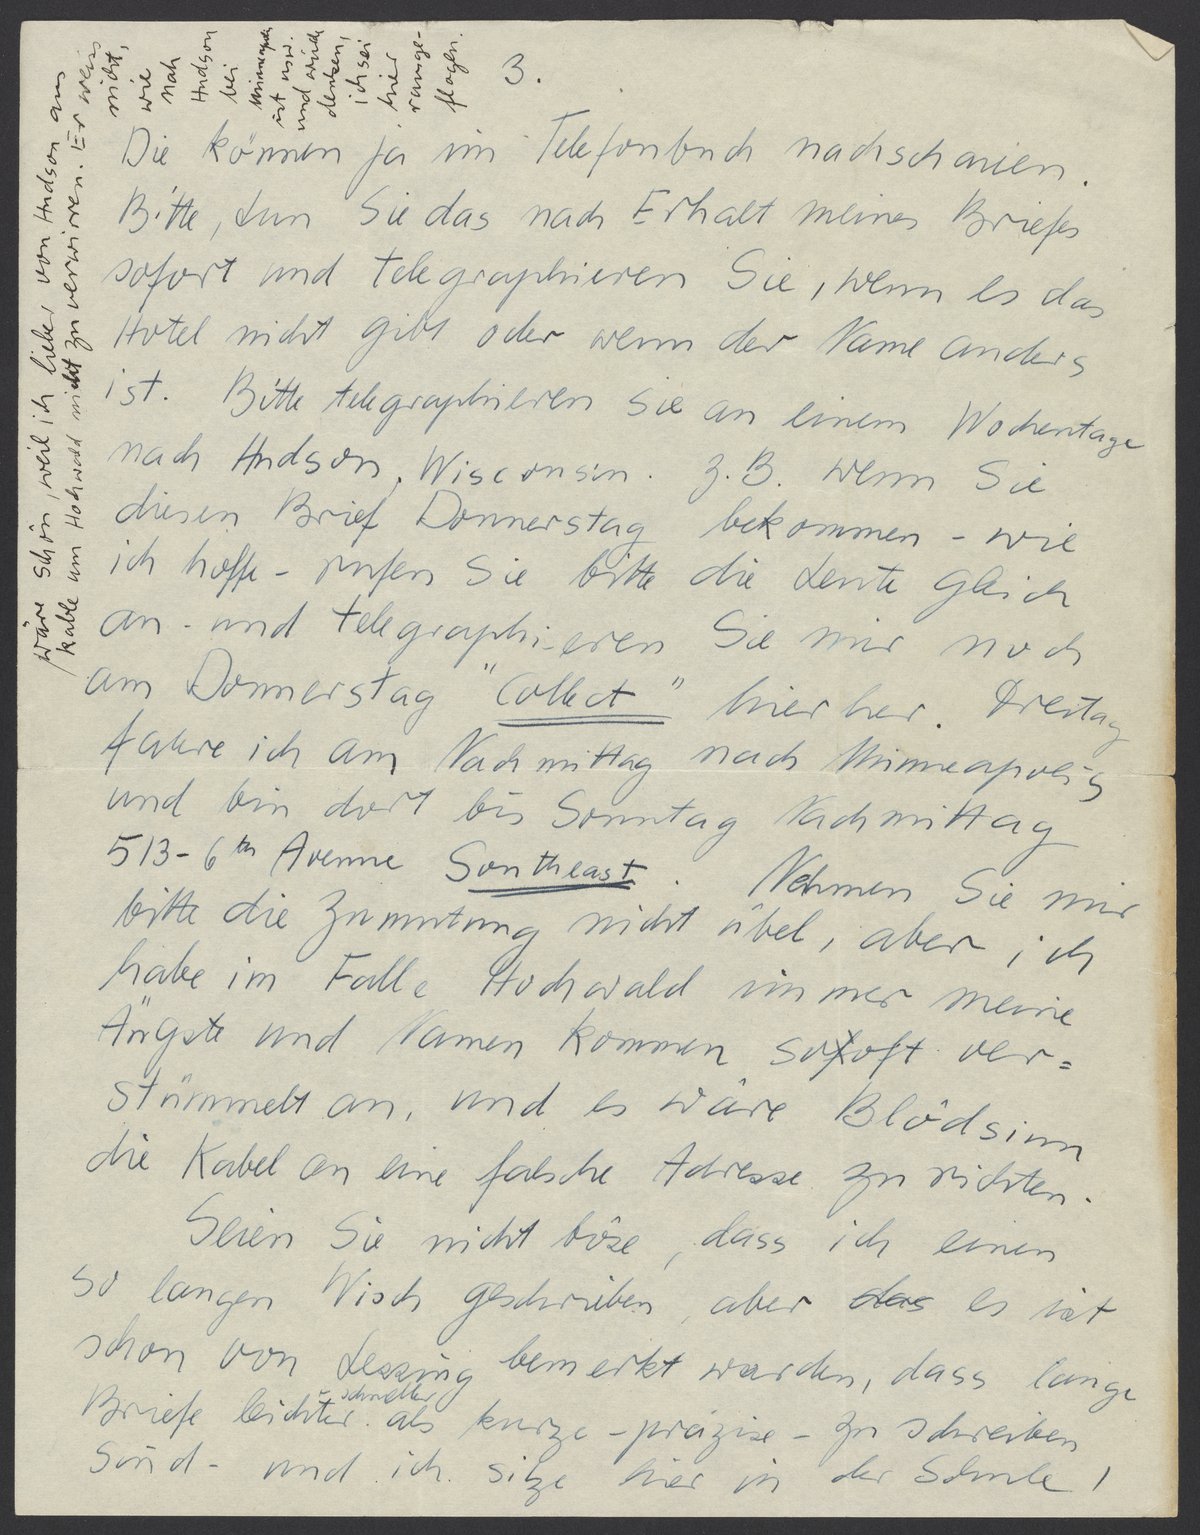 3.
Die können ja im Telefonbuch nachschauen.
Bitte, tun Sie das nach Erhalt meines Briefes
sofort und telegraphieren Sie, wenn es das
Hotel nicht gibt oder wenn der Name anders
ist. Bitte telegraphieren Sie an einem Wochentage
nach Hudson, Wisconsin. z.B. wenn Sie
diesen Brief Donnerstag bekommen - wie
ich hoffe - rufen Sie bitte die Leute gleich
an - und telegraphieren Sie mir noch
am Donnerstag "Collect" hierher. Freitag
fahre ich am Nachmittag nach Minneapolis
und bin dort bis Sonntag Nachmittag
513-6th Avenue Southeast. Nehmen Sie mir
bitte die Zumutung nicht übel, aber ich
habe im Falle Hochwald immer meine
Ängste und Namen kommen so oft ver=
stümmelt an, und es wäre Blödsinn
die Kabel an eine falsche Adresse zu richten.
Seien Sie nicht böse, dass ich einen
so langen Wisch geschrieben, aber das es ist
schon von Lessing bemerkt worden, dass lange
Briefe leichter - schneller als kurze - präzise - zu schreiben
sind - und ich sitze hier in der Schule!
wäre schön, weil ich lieber von Hudson aus
kable um Hochwald nicht zu verwirren. Er weiss
nicht,
wie
nah
Hudson
bei
Minneapolis
ist usw.
und wird
denken,
ich sei
hier
rausge-
flogen.